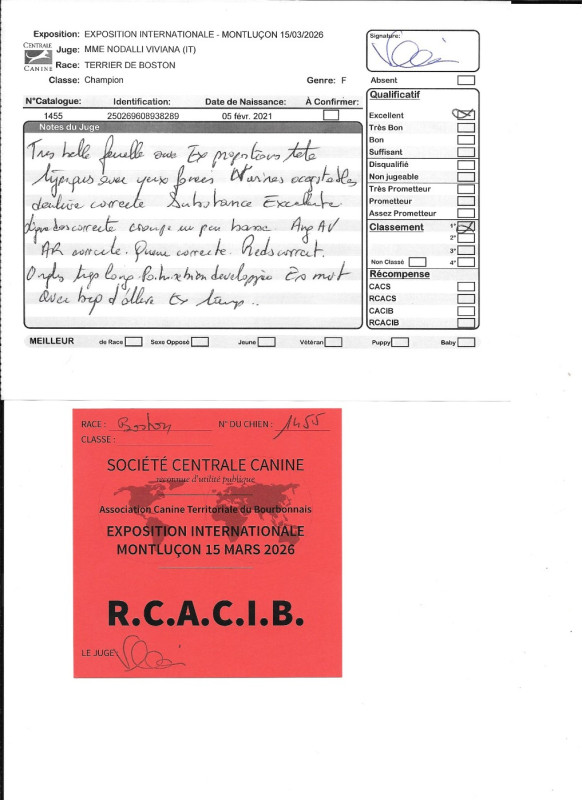 Exposition: EXPOSITION INTERNATIONALE - MONTLUÇON 15/03/2026
CENTRALE CANINE
Juge: MME NODALLI VIVIANA (IT)
Race: TERRIER DE BOSTON
Classe: Champion Genre: F
N°Catalogue: Identification: Date de Naissance: À Confirmer:
1455 250269608938289 05 févr. 2021
Notes du Juge
Tres belle femelle Ex proportions tete
typiques avec yeux foncés Narines acceptables
denture correcte Substance Excellente
ligne dos correcte croupe un peu basse Ang AV
AR correcte. Queue correcte. Pieds correct.
Ongles trop long. Poitrine bien developpée En mvt
avec trop d'allure Ex temp..
Signature:
Absent
Qualificatif
Excellent
Très Bon
Bon
Suffisant
Disqualifié
Non jugeable
Très Prometteur
Prometteur
Assez Prometteur
Classement 1°
2°
3°
Non Classé 4°
Récompense
CACS
RCACS
CACIB
RCACIB
MEILLEUR de Race Sexe Opposé Jeune Vétéran Puppy Baby
RACE : Boston N° DU CHIEN : 1455
CLASSE :
SOCIÉTÉ CENTRALE CANINE
reconnue d'utilité publique
Association Canine Territoriale du Bourbonnais
EXPOSITION INTERNATIONALE
MONTLUÇON 15 MARS 2026
R.C.A.C.I.B.
LE JUGE: